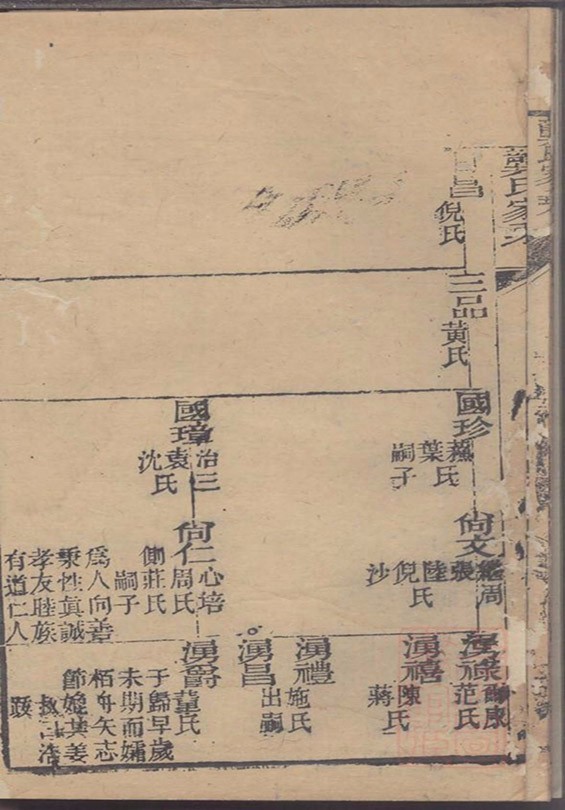 龔氏家乘
昌
倪氏
三品
黃氏
國珍
蘓氏
葉
嗣子
尙文
繼周
張
陸氏
倪
沙
湧祿
範氏
湧禧
陳氏
蔣
湧禮
施氏
出嗣
湧昌
國璋
治三
袁氏
沈
尙仁
心培
周氏
側莊氏
嗣子
爲人向善
秉性眞誠
孝友睦族
有道仁人
湧爵
董氏
于歸早歲
未期而孀
栢舟矢志
節媲共姜